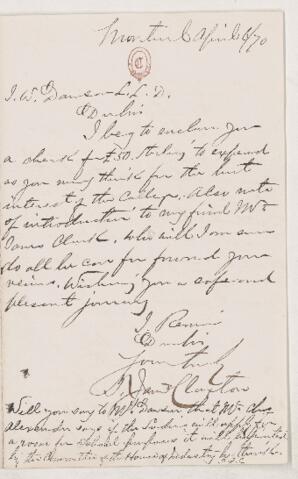 Montreal April 6/70
J. W. Dawson L.L.D.
Dr Sir
I beg to enclose you
a check for £50 Sterling to expend
as you may think for the best
interest of the College. Also note
of introduction to my friend Mr
James Clark, who will I am sure
do all he can for friend your
views. Wishing you a safe and
plesent journey
I Remain
Dr Sir
Yours truly
T. Jam Claxton
Will you say to Mrs Dawson that Mr Chs
Alexander says if the Ladies will apply for
a room for School purposes it will be granted
by the Committee of the House of Industry